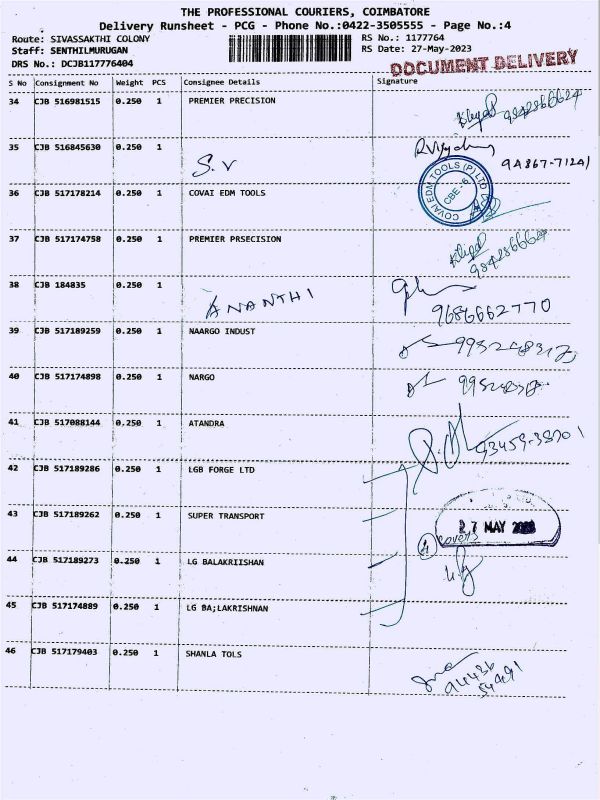 THE PROFESSIONAL COURIERS, COIMBATORE
Delivery Runsheet - PCG - Phone No.:0422-3505555 - Page No.:4
Route: SIVASSAKTHI COLONY RS No.: 1177764
Staff: SENTHILMURUGAN RS Date: 27-May-2023
DRS No.: DCJB117776404 DOCUMENT DELIVERY
S No Consignment No Weight PCS Consignee Details Signature
34 CJB 516981515 0.250 1 PREMIER PRECISION 9842866624
35 CJB 516845630 0.250 1 S.V
36 CJB 517178214 0.250 1 COVAI EDM TOOLS COVAI EDM TOOLS (P) LTD CBE-6
37 CJB 517174758 0.250 1 PREMIER PRSECISION
38 CJB 184835 0.250 1 ANANTHI 9686662770
39 CJB 517189259 0.250 1 NAARGO INDUST
40 CJB 517174898 0.250 1 NARGO
41 CJB 517088144 0.250 1 ATANDRA
42 CJB 517189286 0.250 1 LGB FORGE LTD
43 CJB 517189262 0.250 1 SUPER TRANSPORT 27 MAY 2023
4 covers
44 CJB 517189273 0.250 1 LG BALAKRIISHAN
45 CJB 517174889 0.250 1 LG BA;LAKRISHNAN
46 CJB 517179403 0.250 1 SHANLA TOLS 94436
54491